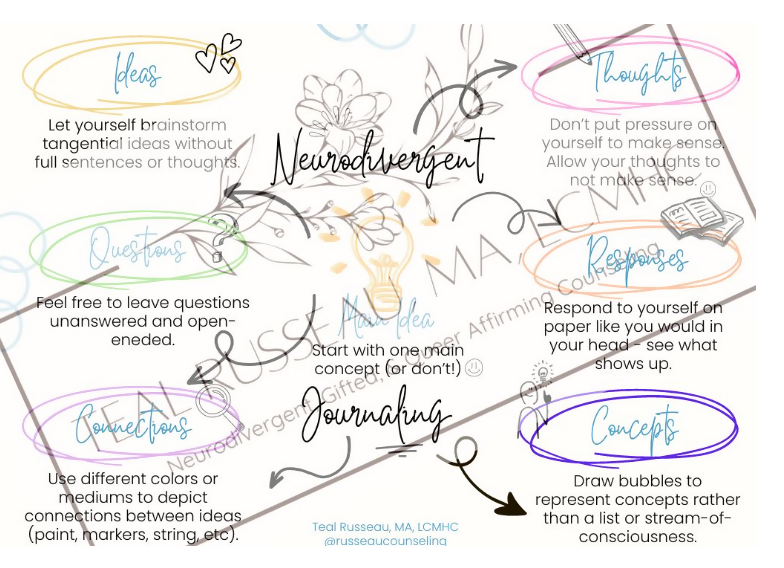 Ideas
Let yourself brainstorm
tangential ideas without
full sentences or thoughts.
Thoughts
Don't put pressure on
yourself to make sense.
Allow your thoughts to
not make sense.
Neurodivergent
Questions
Feel free to leave questions
unanswered and open-
eneded.
Main Idea
Start with one main
concept (or don't!)
Responses
Respond to yourself on
paper like you would in
your head - see what
shows up.
Journaling
Connections
Use different colors or
mediums to depict
connections between ideas
(paint, markers, string, etc).
Concepts
Draw bubbles to
represent concepts rather
than a list or stream-of-
consciousness.
Teal Russeau, MA, LCMHC
@russeaucounseling
TEAL RUSSEAU, MA, LCMHC
Neurodivergent, Gifted, & Queer Affirming Counseling